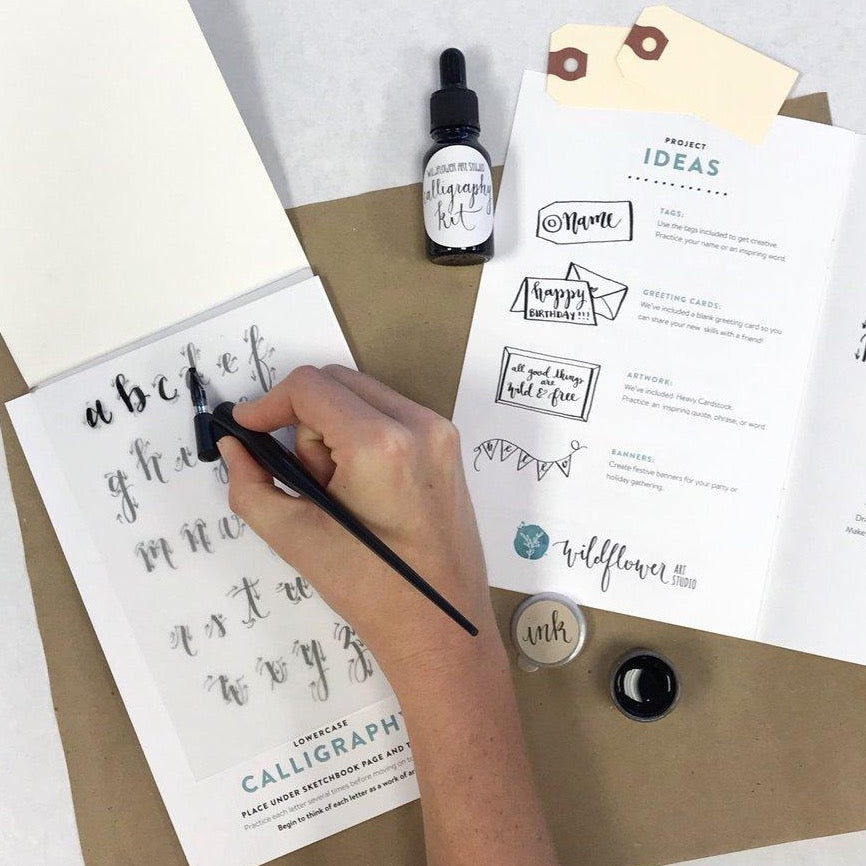 WILDFLOWER ART STUDIO
calligraphy
kit
PROJECT
IDEAS
name
TAGS:
Use the tags included to get creative.
Practice your name or an inspiring word.
happy
BIRTHDAY!!!
GREETING CARDS:
We've included a blank greeting card so you
can share your new skills with a friend!
all good things
are
wild & free
ARTWORK:
We've included Heavy Cardstock.
Practice an inspiring quote, phrase, or word.
BANNERS:
Create festive banners for your party or
holiday gathering.
wildflower ART
STUDIO
ink
a b c d e f
g h i
m n
r s t u
w x y z
LOWERCASE
CALLIGRAPHY
PLACE UNDER SKETCHBOOK PAGE AND
Practice each letter several times before moving on to
Begin to think of each letter as a work of
Make